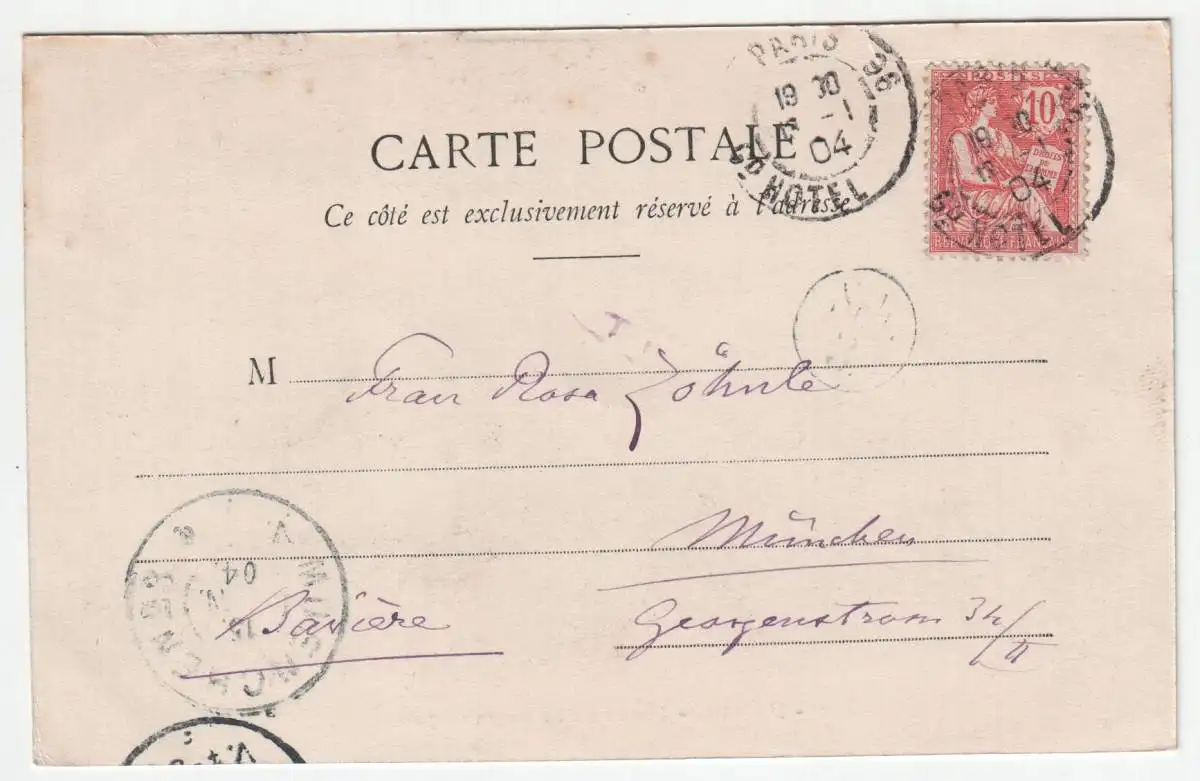 PARIS 96
19 30
5 -1
04
Gd HOTEL
POSTES
10
DROITS
REPUBLIQUE FRANÇAISE
CARTE POSTALE
Ce côté est exclusivement réservé à l'adresse
M Frau Rosa Zöhnle
München
Bavière
Georgenstrasse 34/II
MUENCHEN
04
V